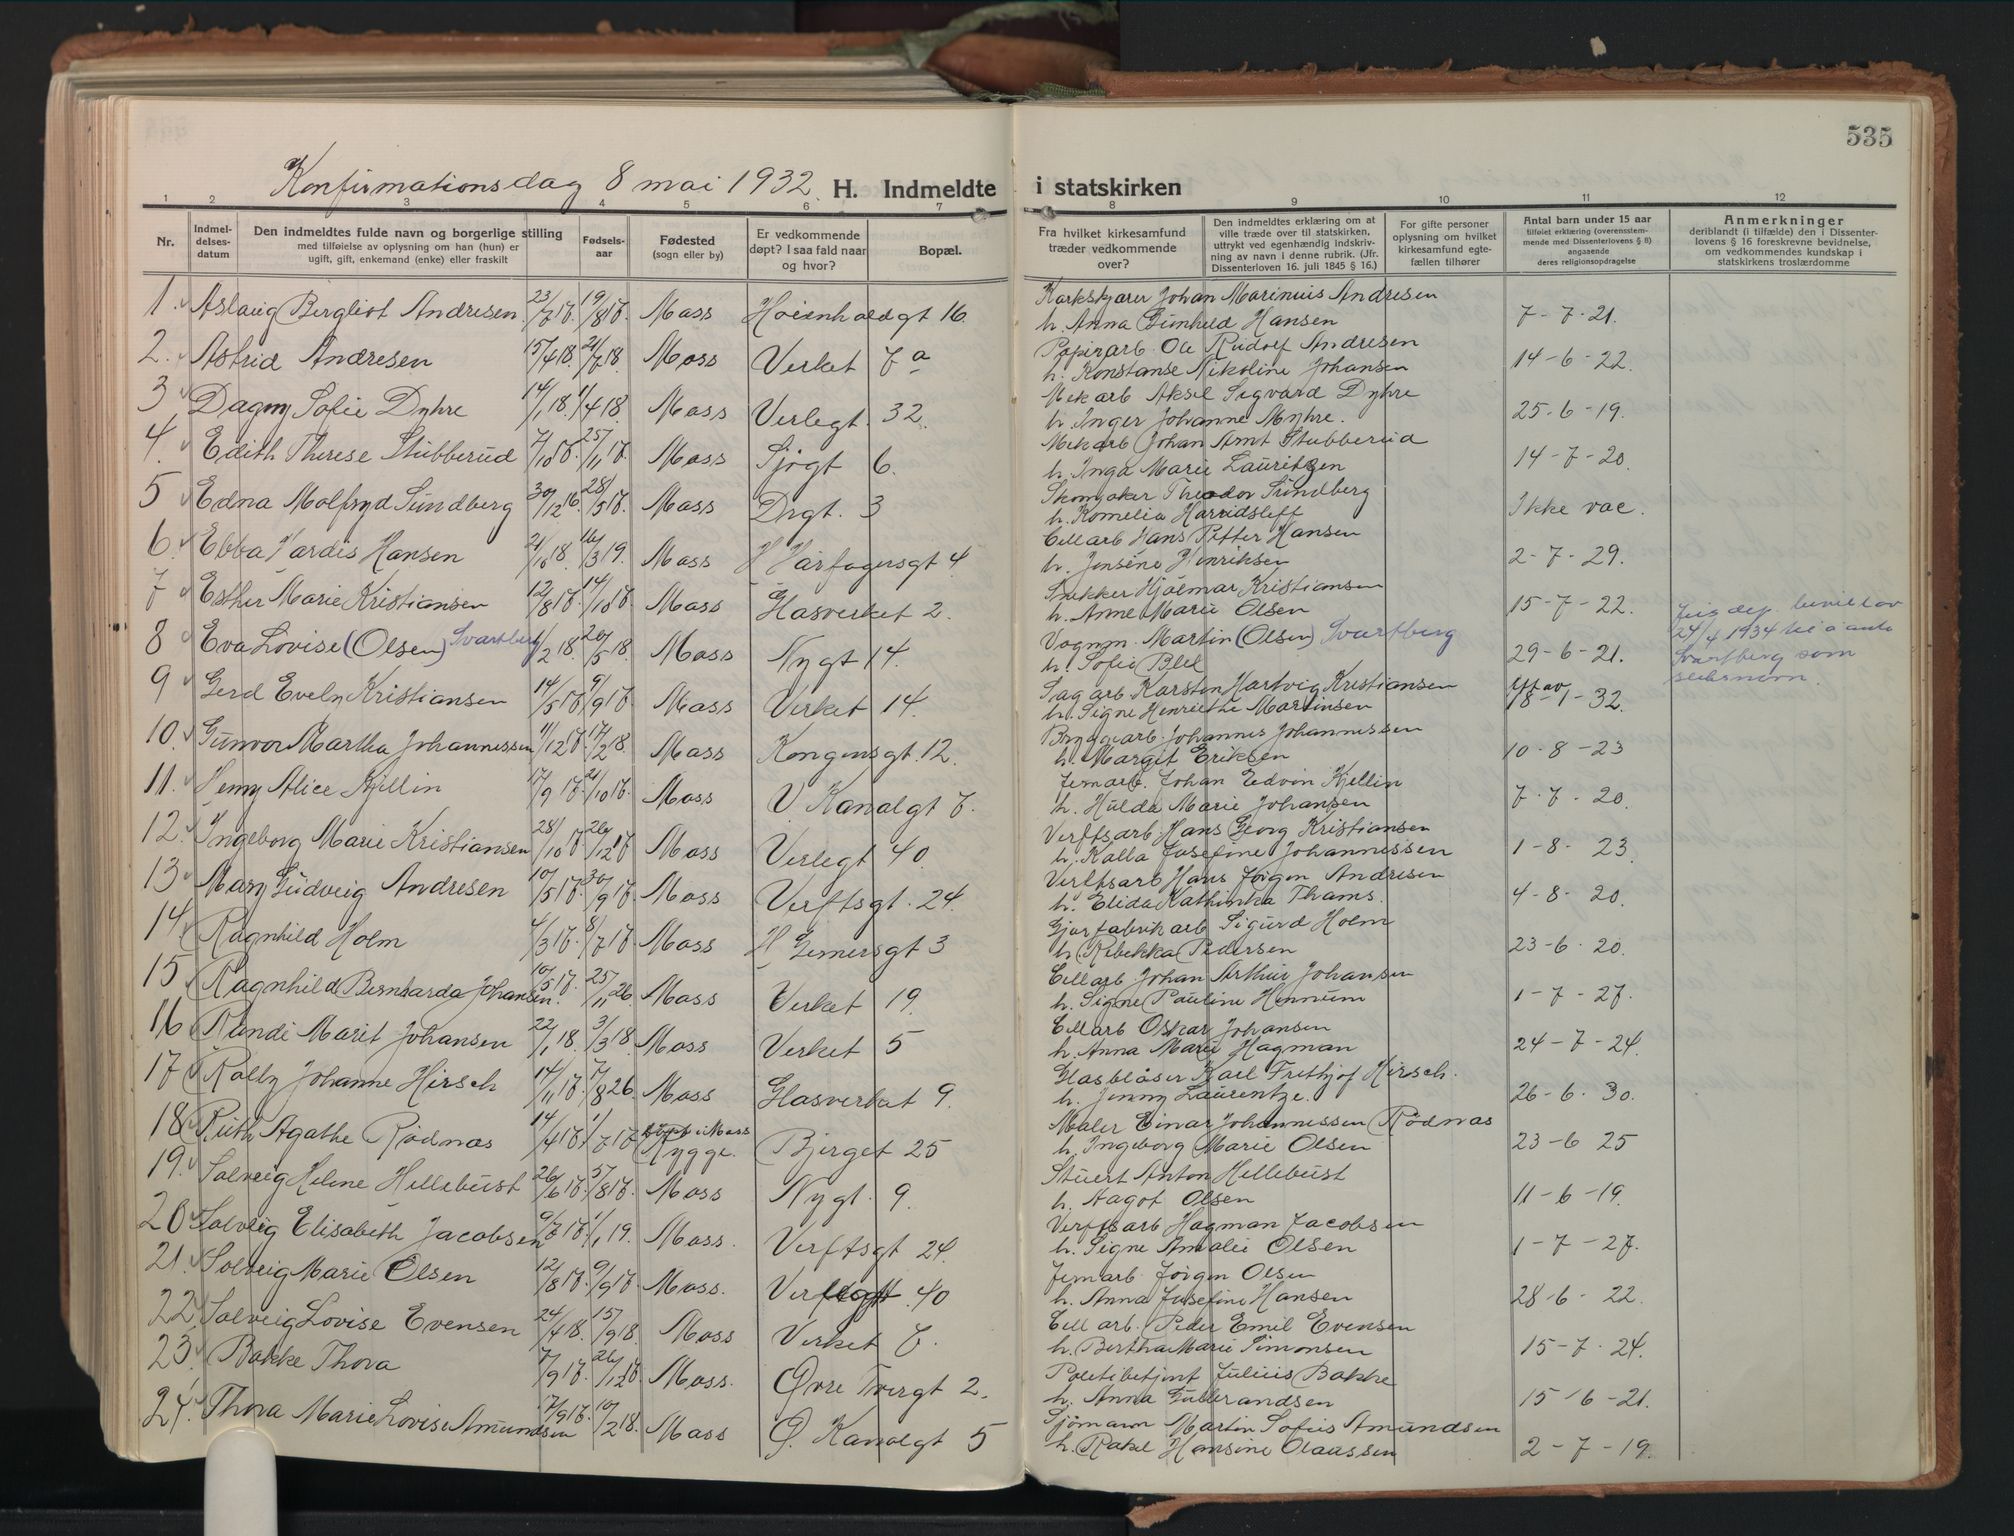 535
Konfirmationsdag 8 mai 1932. H. Indmeldte i statskirken
1 2 3 4 5 6 7 8 9 10 11 12
Nr.
Indmel-
delses-
datum
Den indmeldtes fulde navn og borgerlige stilling
med tilføielse av oplysning om han (hun) er
ugift, gift, enkemand (enke) eller fraskilt
Fødsels-
aar
Fødested
(sogn eller by)
Er vedkommende
døpt? I saa fald naar
og hvor?
Bopæl.
Fra hvilket kirkesamfund
træder vedkommende
over?
Den indmeldtes erklæring om at
ville træde over til statskirken,
uttrykt ved egenhændig indskriv-
ning av navn i denne rubrik. (Jfr.
Dissenterloven 16. juli 1845 § 16.)
For gifte personer
oplysning om hvilket
kirkesamfund egte-
fællen tilhører
Antal barn under 15 aar
tilføiet erklæring (overensstem-
mende med Dissenterlovens § 8)
angaaende
deres religionsopdragelse
Anmerkninger
deriblandt (i tilfælde) den i Dissenter-
lovens § 16 foreskrevne bevidnelse,
om vedkommendes kundskap i
statskirkens troslærdomme
1. Aslaug Bergliot Andresen 23/7 17. 19/8 17. Moss Høienhaldgt 16. Korkskjærer Johan Marinius Andresen
h. Anna Gunhild Hansen 7-7-21.
2. Astrid Andresen 15/4 18. 21/7 18. Moss Verket 7a Papirarb. Ole Rudolf Andresen
h. Konstanse Nikoline Johansen 14-6-22.
3 Dagny Sofie Dyhre 14/1 18. 1/4 18 Moss Verlegt. 32. Mek arb Aksel Sigvard Dyhre
h. Inger Johanne Myhre. 25-6-19.
4. Edith Therese Stubberud 7/10 17. 25/11 17. Moss Sjøgt 6. Mek arb Johan Arnt Stubberud
h. Inga Marie Lauritzen 14-7-20.
5 Edna Molfryd Sundberg 30/12 16. 28/5 17. Moss Drgt. 3 Skomaker Theodor Sundberg
h. Kornelia Harridsleff Ikke vac.
6. Ebba Vardis Hansen 21/10 18. 16/3 19. Moss H Harfagersgt 4. Cell arb Hans Petter Hansen
h. Jensine Henriksen 2-7-29.
7 Esther Marie Kristiansen 12/8 17. 14/10 17. Moss Glasverket 2. Snekker Hjalmar Kristiansen
h. Anne Marie Olsen 15-7-22.
8 Eva Lovise (Olsen) Svartberg 1/2 18. 20/5 18. Moss Nygt 14. Vognm. Martin (Olsen) Svartberg
h. Sofie Blel 29-6-21.
24/4 1934 til å anta
Svartberg som
slektsnavn.
9 Gerd Evelyn Kristiansen 14/5 17. 9/9 17. Moss Verket 14. Sag arb. Karsten Hartvig Kristiansen
h. Signe Henriette Martinsen 18-1-32.
10. Gunvor Martha Johannessen 11/12 17. 17/2 18. Moss Kongensgt. 12. Bryggearb. Johannes Johannessen
h. Margit Eriksen 10-8-23
11. Henny Alice Kjellin 17/9 17. 21/10 17. Moss V. Kanalgt 7. Jernarb. Johan Edvin Kjellin
h. Hulda Marie Johansen 7-7-20.
12. Ingeborg Marie Kristiansen 28/10 17. 26/12 17 Moss Verlegt 40 Verftsarb. Hans Georg Kristiansen
h. Kalla Josefine Johannessen 1-8-23.
13. Mary Gudveig Andresen 10/5 17. 30/9 17. Moss Verftsgt. 24. Verftsarb Hans Jørgen Andresen
h. Elida Kathinka Thams. 4-8-20.
14 Ragnhild Holm 4/3 17. 8/7 17. Moss H Gernersgt 3 Gjærfabrik arb Sigurd Holm
h. Rebekka Pedersen 23-6-20.
15 Ragnhild Bernharda Johansen. 10/5 17. 25/11 26 Moss Verket 19. Cell arb Johan Arthur Johansen
h. Signe Pauline Hennum 1-7-27.
16 Rundi Marit Johansen 22/1 18. 3/3 18. Moss Verket 5 Cell arb Oskar Johansen
h. Anna Marie Hagman 24-7-24.
17 Rolly Johanne Hirsch 14/11 17. 7/8 26. Moss Glasverket 9. Glasblåser Karl Frithjof Hirsch.
h. Jenny Laurentze. 26-6-30.
18 Ruth Agathe Rødnæs 14/4 17. 1/7 17 døpt i Moss
Rygge. Bjerget 25 Maler Einar Johannessen Rødnæs
h. Ingeborg Marie Olsen 23-6 25
19. Solveig Helene Hellebust 26/6 17. 5/8 17. Moss Nygt. 9. Stuert Anton Hellebust
h. Aagot Olsen 11-6-19.
20 Solveig Elisabeth Jacobsen 9/7 17. 1/1 19. Moss. Verftsgt 24. Verftsarb Hagman Jacobsen
h. Signe Amalie Olsen 1-7-27.
21. Solveig Marie Olsen 12/8 17. 9/9 17. Moss. 40 Jernarb. Jørgen Olsen
h. Anna Josefine Hansen 28-6-22.
22. Solveig Lovise Evensen 24/4 18. 15/9 18. Moss Verket 7. Cell arb. Peder Emil Evensen
h. Bertha Marie Simonsen 15-7-24.
23. Bakke Thora 7/9 17. 26/12 17. Moss. Øvre Tvergt 2. Politibetjent Julius Bakke
h. Anna Gulbrandsen 15-6-21.
24. Thora Marie Lovise Amundsen 17/9 17. 10/2 18. Moss Ø. Kanalgt 5 Sjømann Martin Sofus Amundsen
h. Rakel Hansine Olaussen 2-7-19.